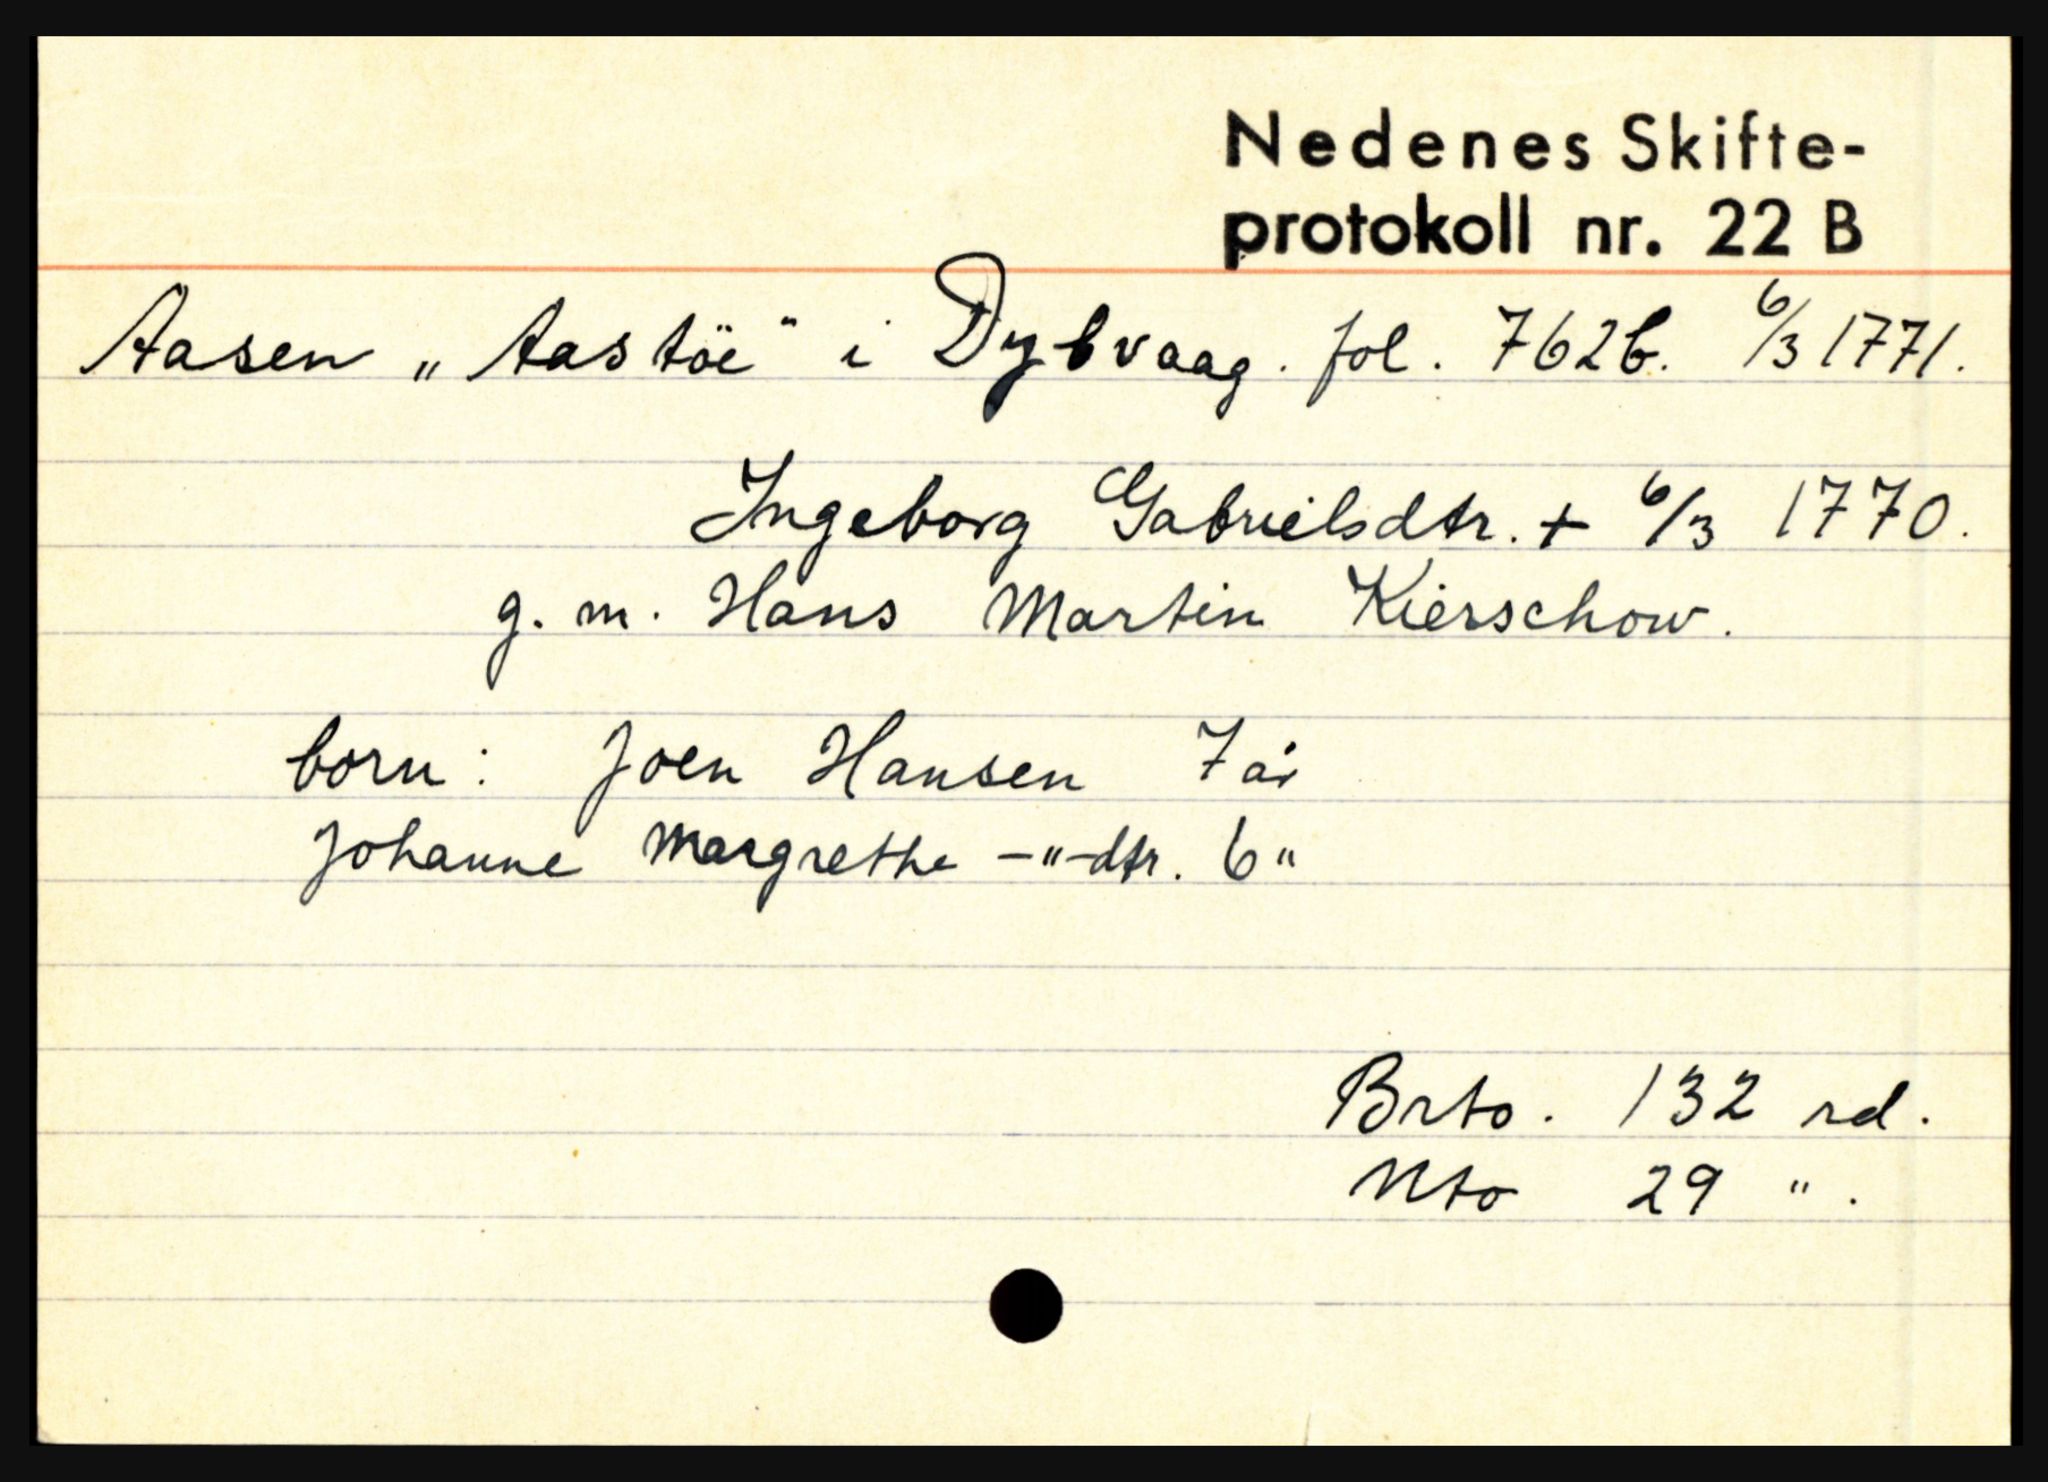 Nedenes Skifte-
protokoll nr. 22 B
Aasen „Aastöe" i Dybvaag. fol. 762b. 6/3 1771.
Ingeborg Gabrielsdtr. + 6/3 1770.
g. m. Hans Martin Kierschow.
born: Joen Hansen 7 år
Johanne Margrethe -"-dtr. 6 "
Brto. 132 rd.
Nto 29 ".